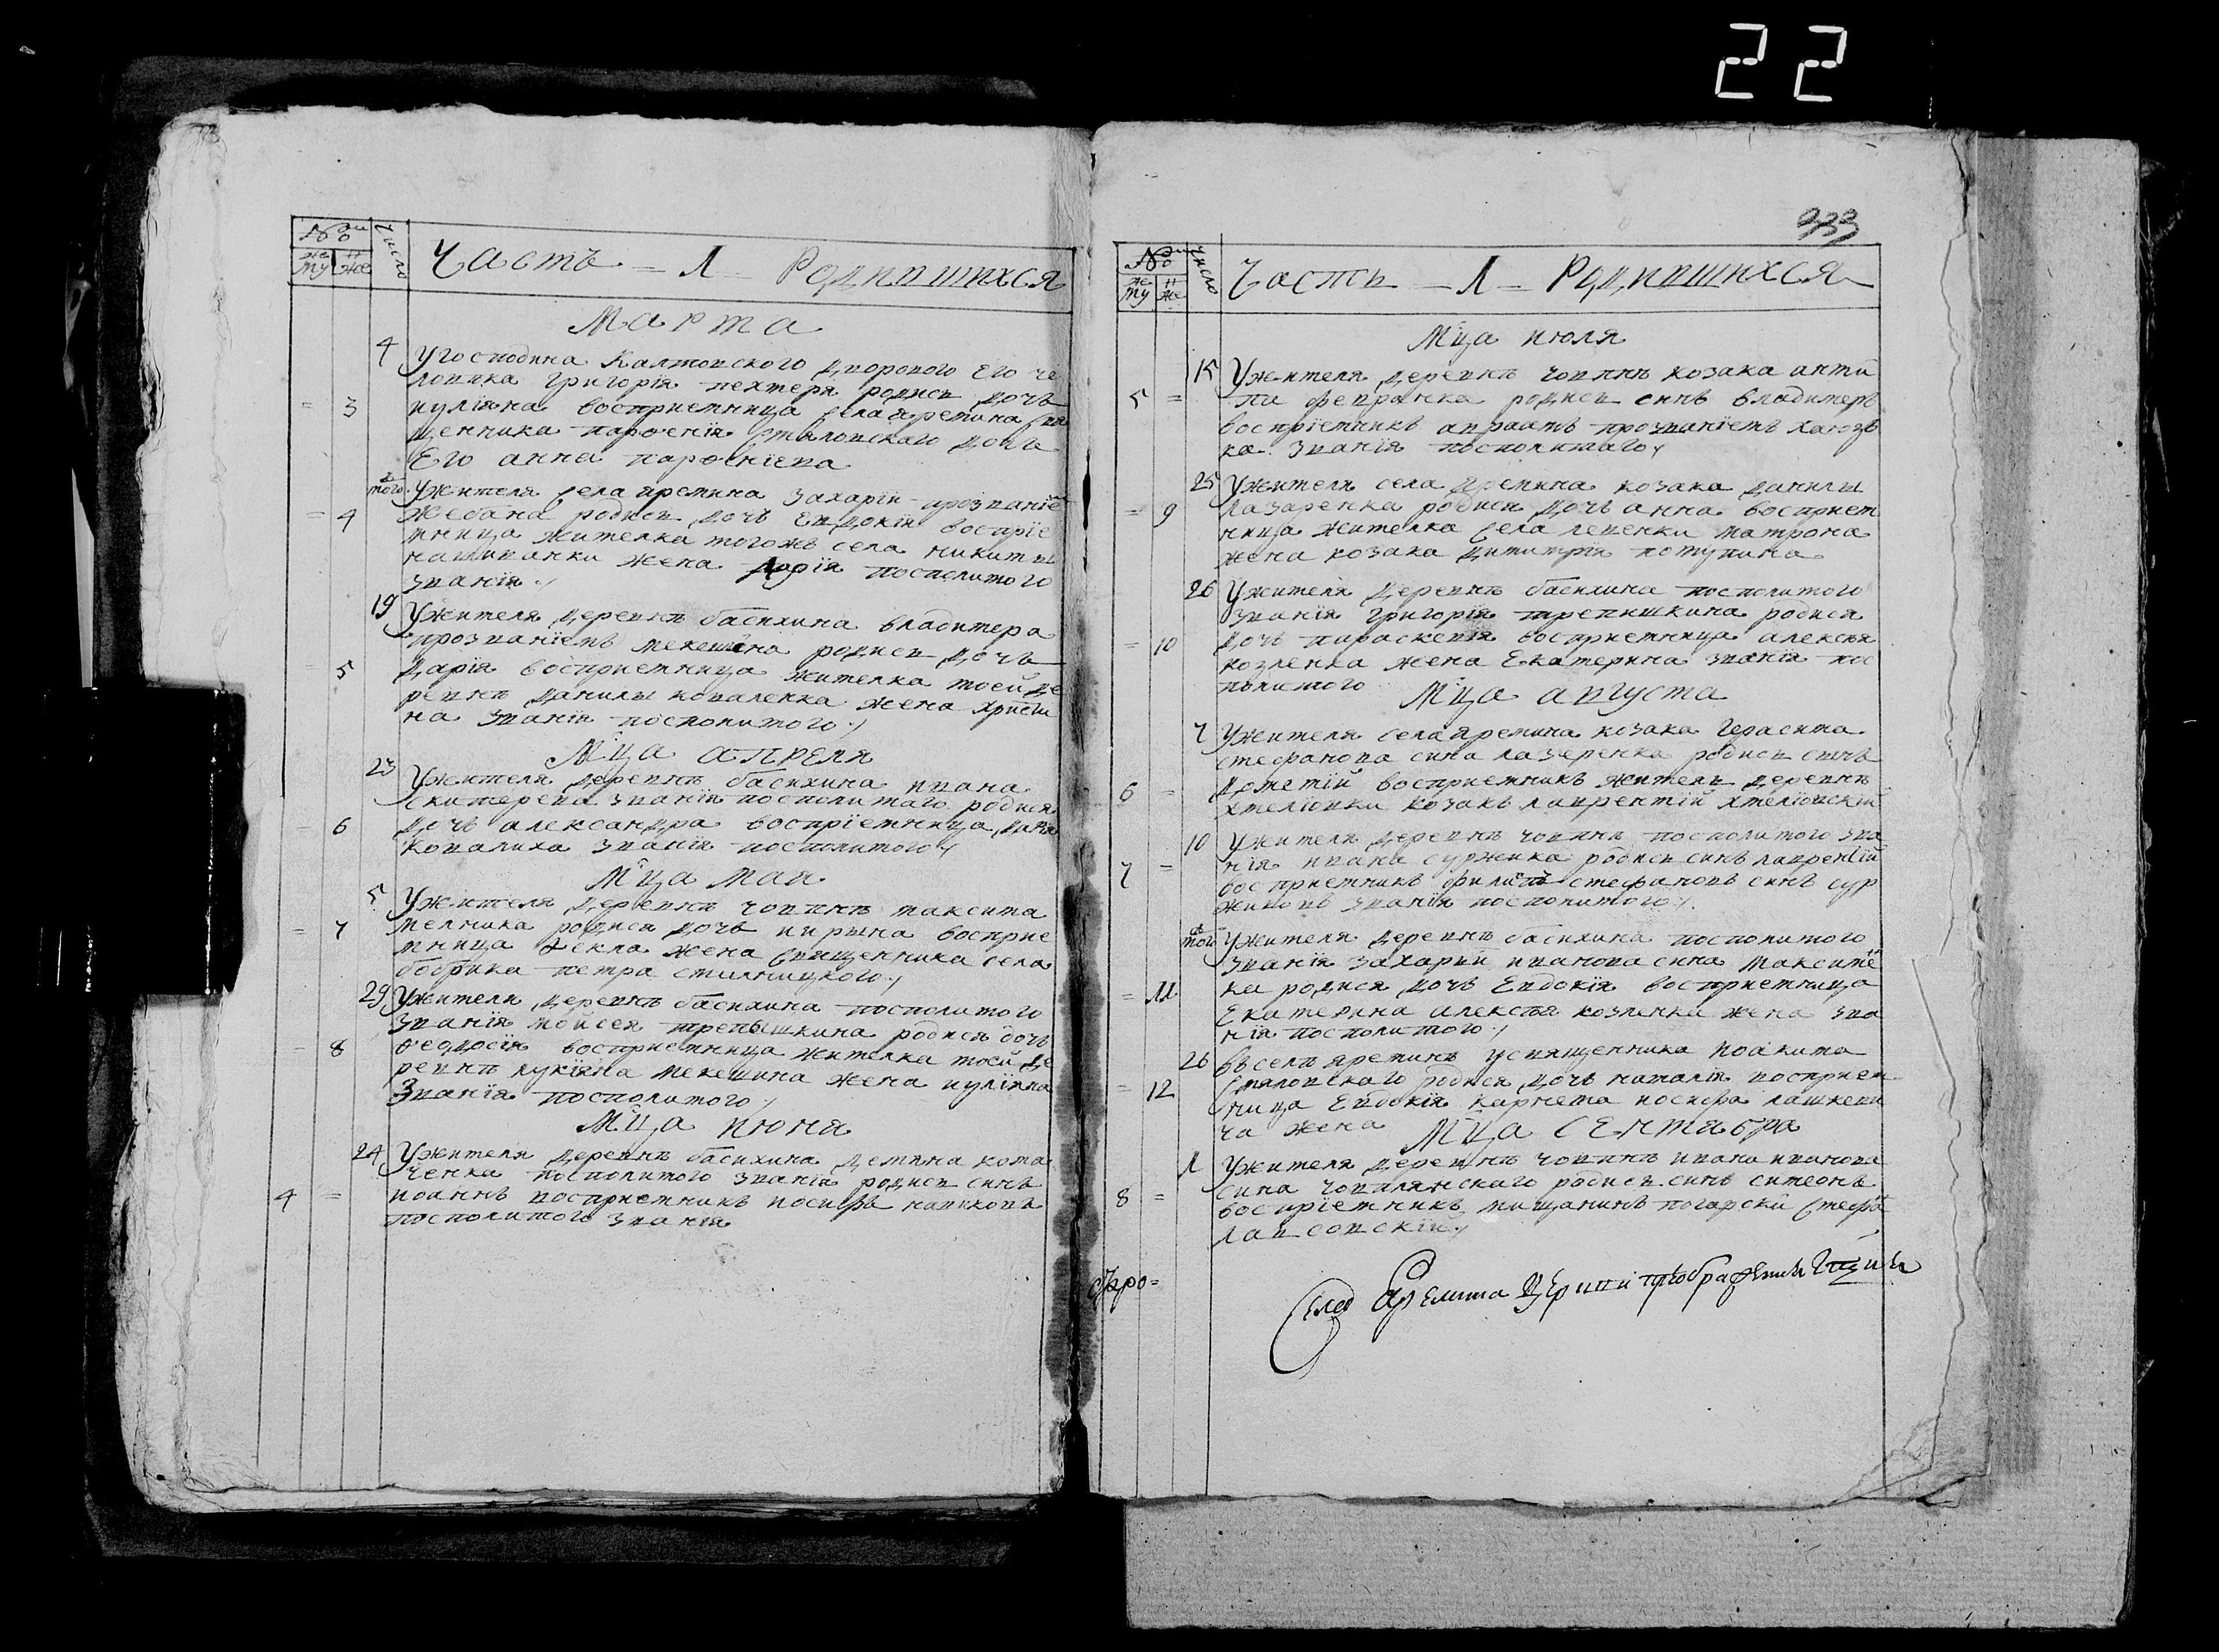 22
№
му же
число
Часть - 1 Родившихся
Марта
4 У господина Калтовского дворового Его че
ловика Григорія пехтеря родись дочъ
= 3 иуліяна восприемница села яремина свя
щенника парфенія Стиловскаго дочъ
Его анна парфеніева
того У жителя села яремина Захарїи прозваніе
= 4 жебана родись дочъ Евдокія воспріе
мница жителка того жъ села никиты
жена дарія посполитого
званія
19 У жителя деревнѣ басихина владимера
прозваніемъ мекешина родись дочъ
5 дарія восприемница жителка тоей де
ревнѣ данилы коваленка жена христи
на званія посполитого
Мца апреля
23 У жителя деревнѣ басихина ивана
званія посполитаго родися
= 6 дочъ александра воспріемница
ковалиха званія посполитого
Мца Маи
5 У жителя деревнѣ човпнѣ максима
= 7 мелника родися дочъ ирына восприе
мница Ѳекла жена священника села
бобрика петра
29 У жителя деревнѣ басихина посполитого
званія мойсея трепышкина родися дочъ
= 8 Ѳеодосія восприемница жителка тоей де
ревнѣ лукіяна мекешина жена иуліяна
званія посполитого
Мца июня
24 У жителя деревнѣ басихина демяна кома
ченка посполитого званія родися синъ
4 = иоаннъ восприемникъ иосифъ
посполитого званія
333
№
му же
число
Часть - 1 - Родившихся
Мца июля
15 У жителя деревнѣ човпнѣ козака анти
5 = па февранка родись синъ владимеръ
воспріемникъ авраамъ прозваніемъ
званія посполитаго
25 У жителя села яремина козака данилы
= 9 лазаренка родися дочъ анна восприем
ница жителка села левенки матрона
жена козака димитрія потупина
26 У жителя деревнѣ басихина посполитого
званія григорія трепишкина родися
= 10 дочъ параскевія восприемница алексѣя
козленка жена Екатерина званія пос
политого
Мца августа
7 У жителя села яремина козака герасима
стефанова сина лазаренка родись синъ
6 = дометій восприемникъ житель деревнѣ
хмеліовки козакъ лаврентій хмеліовскій
10 У жителя деревнѣ човпнѣ посполитого зва
7 = нія ивана суржика родись синъ лаврентій
восприемникъ филипъ стефановъ синъ сур
жиковъ званія посполитого
того У жителя деревнѣ басихина посполитого
званія захарїи иванова сина максиме
= 11 ка родися дочъ Евдокія восприемница
Екатерина алексѣя козленка жена зва
нія посполитого
26 въ селѣ яреминѣ у священника иоакима
= 12 Стиловскаго родися дочъ наталія восприем
ница Евдокія карнета иосифа лашкеви
ча жена
Мца Сентября
1 У жителя деревнѣ човпнѣ ивана иванова
8 = сина човплянскаго родись синъ симеонъ
воспріемникъ мищанинъ погарскій Стефа
лавсовскій
Села Яремина Церкви преображенія